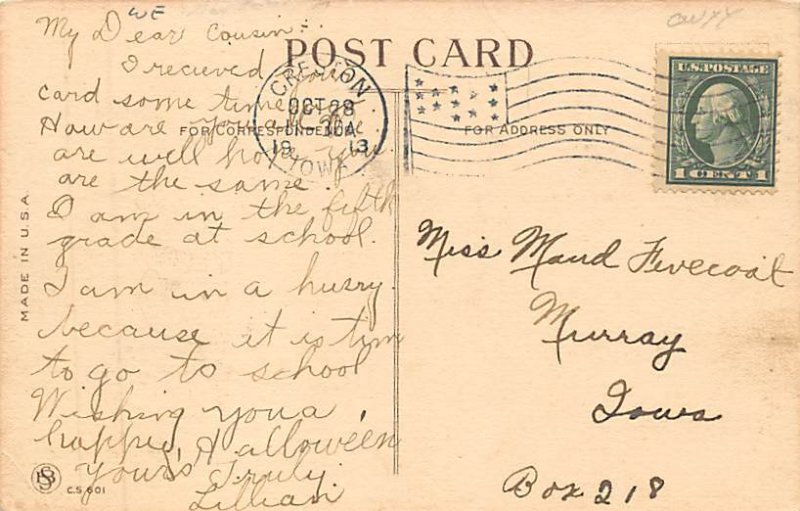 WE
My Dear Cousin:
I recieved your
card some time
How are you all We
are well hope you
are the same.
I am in the fifth
grade at school.
I am in a hurry.
because it is tim
to go to school
Wishing you a
happy Halloween
yours Truly.
Lillian
MADE IN U.S.A.
C.S. 601
POST CARD
FOR CORRESPONDENCE
FOR ADDRESS ONLY
CRESTON
OCT 28
10A
1913
IOWA
U.S. POSTAGE
1 CENT 1
Miss Maud Fivecoat
Murray
Iowa
Box 218